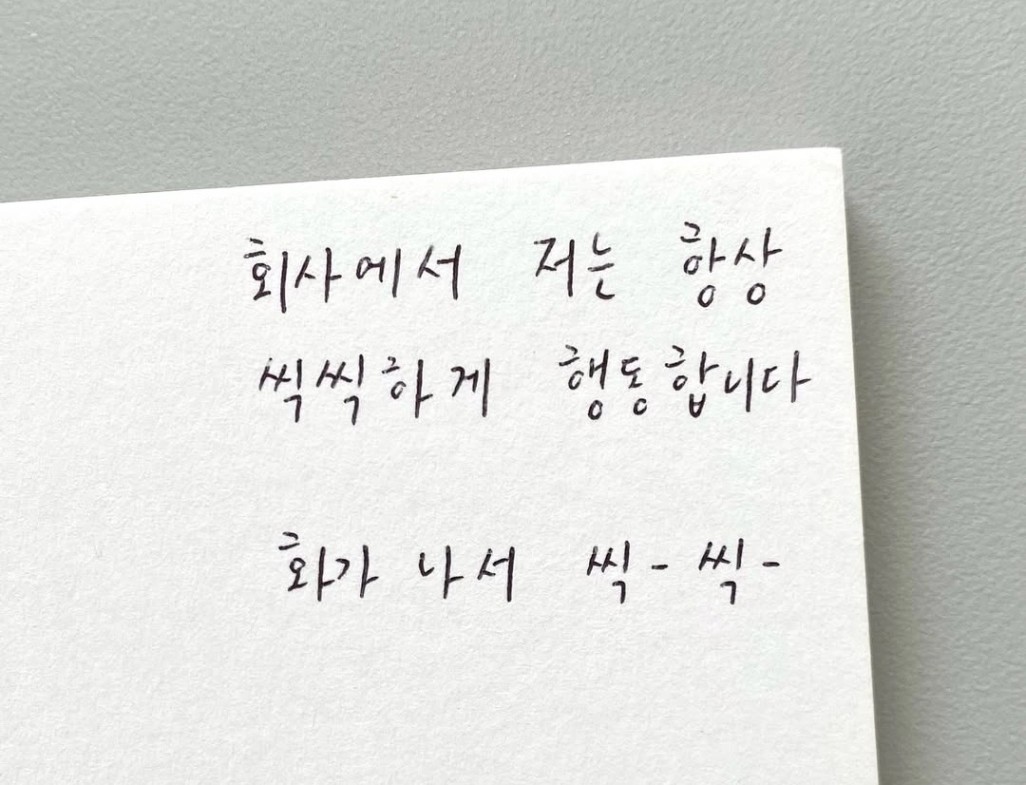 회사에서 저는 항상
씩씩하게 행동합니다
화가 나서 씩- 씩-